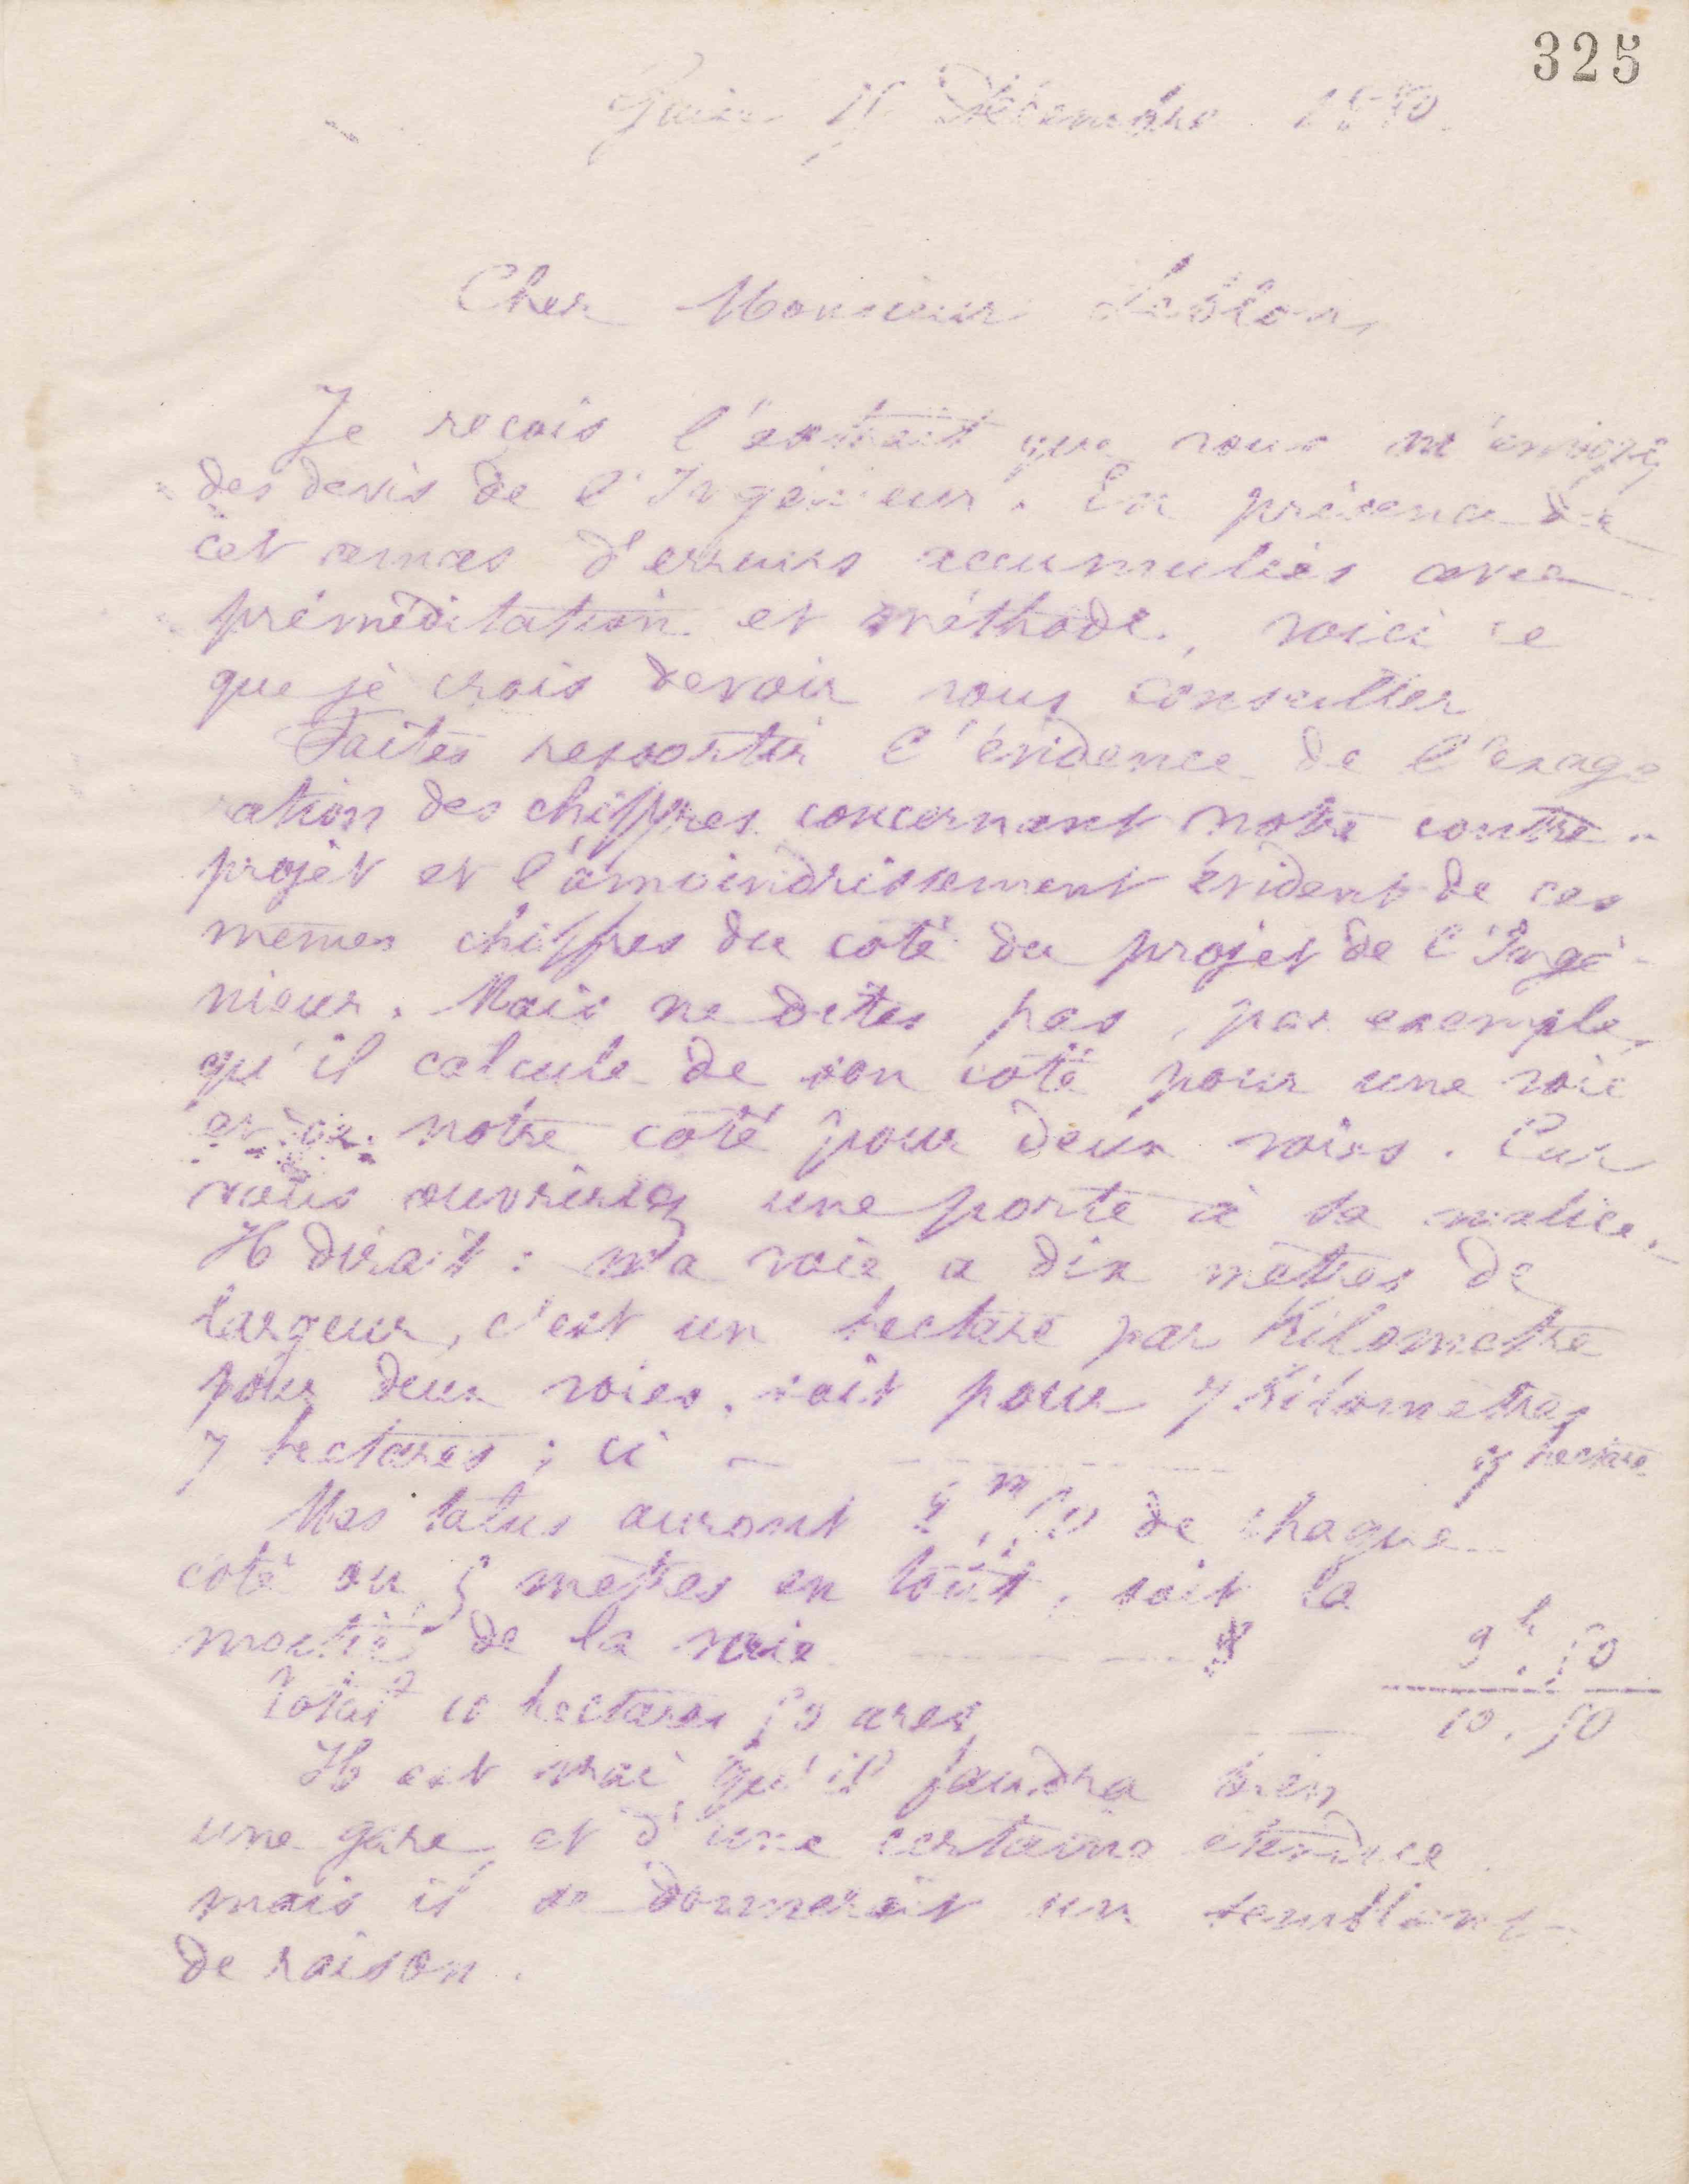 325
Guise Décembre
Cher Monsieur
Je reçois l'extrait que vous m'envoyez
des devis de l'Ingénieur. En présence de
cet amas d'erreurs accumulées avec
préméditation et méthode, voici ce
que je crois devoir vous conseiller
Faites ressortir l'évidence de l'exagé
ration des chiffres concernant notre contre-
projet et l'amoindrissement évident de ces
mêmes chiffres du côté du projet de l'Ingé-
nieur. Mais ne dites pas, par exemple,
qu'il calcule de son côté pour une voie
et de notre côté pour deux voies. Car
vous ouvririez une porte à sa malice.
Il dirait : ma voie a dix mètres de
largeur, c'est un hectare par Kilomètre
pour deux voies, soit pour 7 Kilomètres
7 hectares ; ci — 7 hectares
Mes talus auront 2m,50 de chaque
côté ou 5 mètres en tout, soit la
moitié de la voie 50
Total 10 hectares 50 ares 10.50
Il est vrai qu'il faudra bien
une gare et d'une certaine étendue
mais il se donnerait un semblant
de raison.